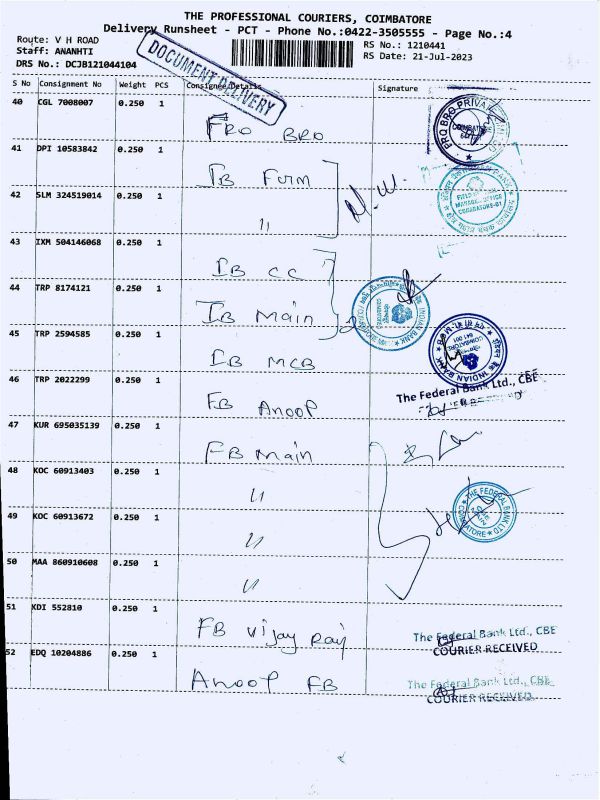 THE PROFESSIONAL COURIERS, COIMBATORE
Delivery Runsheet - PCT - Phone No.:0422-3505555 - Page No.:4
Route: V H ROAD
Staff: ANANHTI
RS No.: 1210441
DRS No.: DCJB121044104
RS Date: 21-Jul-2023
DOCUMENT DELIVERY
S No Consignment No Weight PCS Consignee Details Signature
40 CGL 7008007 0.250 1 FRO BRO
41 DPI 10583842 0.250 1 IB Furm
42 SLM 324519014 0.250 1 "
43 IXM 504146068 0.250 1 IB CC
44 TRP 8174121 0.250 1 IB main
45 TRP 2594585 0.250 1 IB MCB
46 TRP 2022299 0.250 1 FB Anoop
The Federal Bank Ltd., CBE
47 KUR 695035139 0.250 1 FB main
48 KOC 60913403 0.250 1 "
49 KOC 60913672 0.250 1 "
THE FEDERAL BANK LTD
COIMBATORE
50 MAA 860910608 0.250 1 "
51 KDI 552810 0.250 1 FB vijay Raj
The Federal Bank Ltd., CBE
COURIER RECEIVED
52 EDQ 10204886 0.250 1 Anoop FB
The Federal Bank Ltd., CBE
COURIER RECEIVED